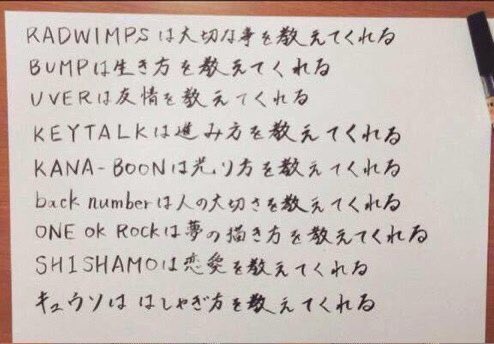 RADWIMPSは大切な事を教えてくれる
BUMPは生き方を教えてくれる
UVERは友情を教えてくれる
KEYTALKは進み方を教えてくれる
KANA-BOONは光り方を教えてくれる
back numberは人の大切さを教えてくれる
ONE OK ROCKは夢の描き方を教えてくれる
SHISHAMOは恋愛を教えてくれる
キュウソは はしゃぎ方を教えてくれる